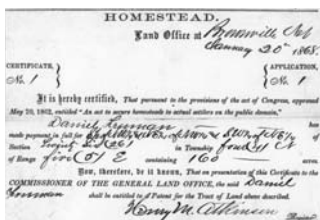 HOMESTEAD.
Land Office at Brownville N.T.
January 20th 1868.
CERTIFICATE, APPLICATION,
No. 1 No. 1
It is hereby certified, That pursuant to the provisions of the act of Congress, approved
May 20, 1862, entitled "An act to secure homesteads to actual settlers on the public domain,"
Daniel Freeman has
made payment in full for of
Section Twenty six (26) in Township four (4) N
of Range five (5) E containing 160 acres.
Now, therefore, be it known, That on presentation of this Certificate to the
COMMISSIONER OF THE GENERAL LAND OFFICE, the said Daniel
Freeman shall be entitled to a Patent for the Tract of Land above described.
Henry M. Atkinson
Register.